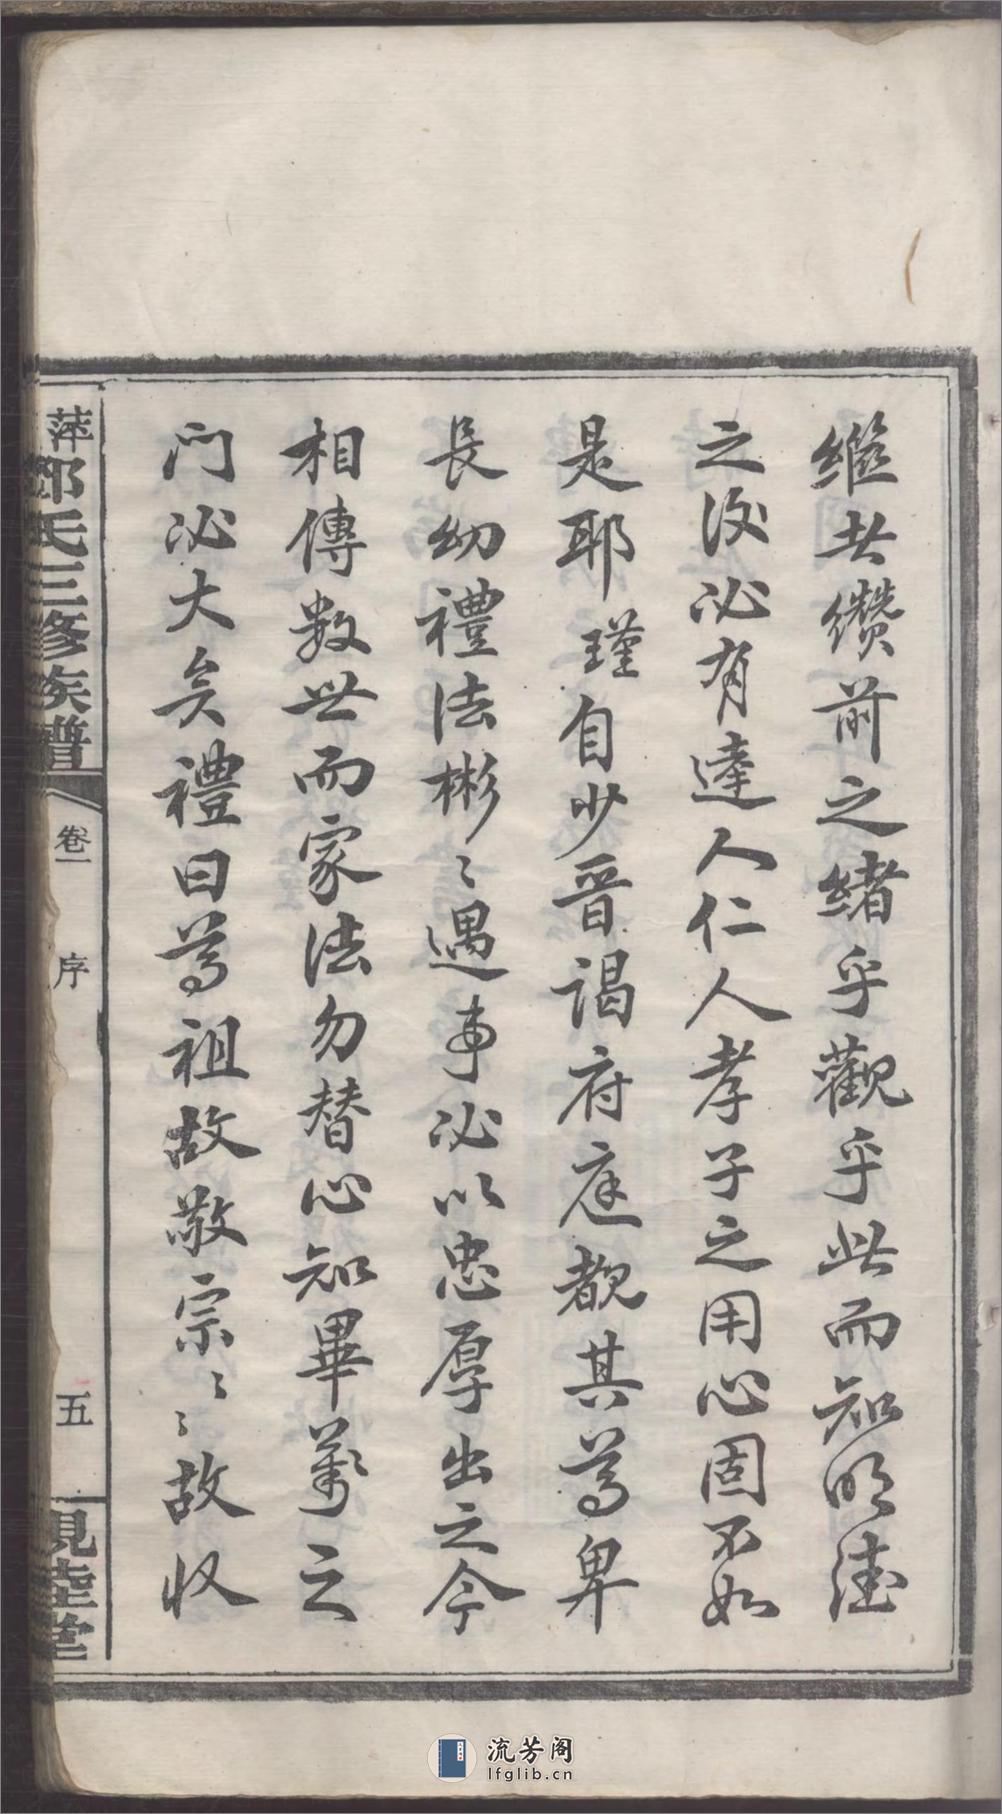 繼其纘前之緒乎觀乎此而知明德
之後必有達人仁人孝子之用心固不如
是耶瑾自少晋謁府庭覩其尊卑
長幼禮法彬〻遇事必以忠厚出之今
相傳數世而家法勿替心知畢萬之
門必大矣禮曰尊祖故敬宗〻〻故收
萍 邹氏三修族譜
卷一 序
五
睦堂
流芳阁
lfglib.cn